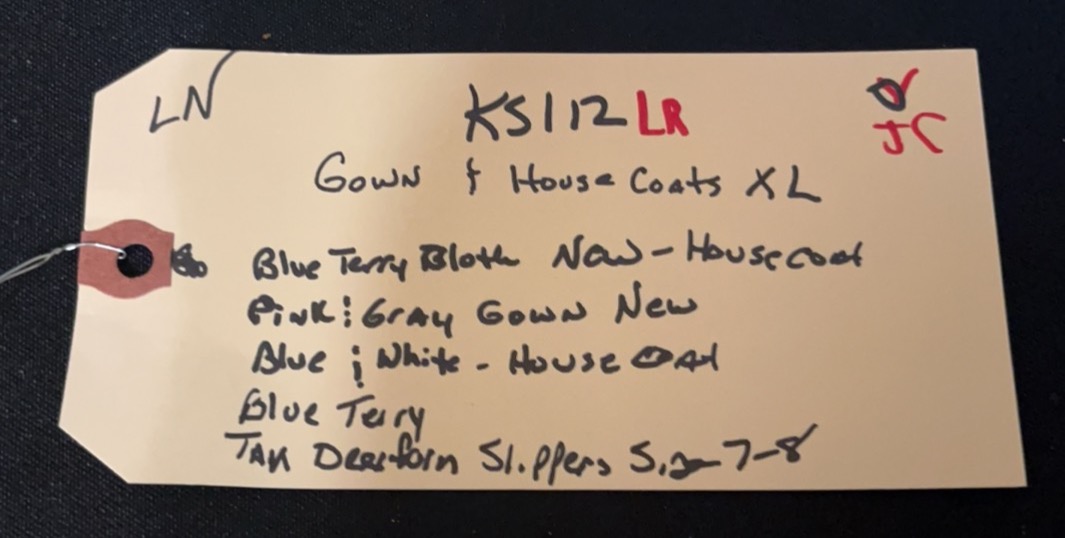 LN
KS112 LR
JC
Gown & House Coats XL
Blue Terry Bloth New - Housecoat
Pink & Gray Gown New
Blue & White - House Oat
Blue Terry
Tan Dearforn Slippers Size 7-8